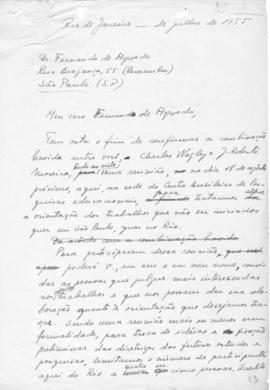 Rio de Janeiro — de julho de 1955.
Dr. Fernando de Azevedo
Rua Bragança, 55 (Pacaembu)
São Paulo (S.P)
Meu caro Fernando de Azevedo,
Tem esta o fim de confirmar a combinação
havida entre você, Charles Wagley e J. Roberto
Moreira, para uma reunião, no dia 08 de agosto
próximo, aqui, na sede do Centro Brasileiro de Pes-
quisas educacionais, a fim de tratarmos da
a orientação dos trabalhos que vão ser iniciados
quer em São Paulo, quer no Rio.
De acordo com a combinação havida
Para participarem dessa reunião,
poderá v., em seu e em meu nome, convi-
dar as pessoas que julgue mais interessadas
nos trabalhos e que nos possam dar sua cola-
boração quanto à orientação que desejamos tra-
çar. Sendo uma reunião mais ou menos sem
formalidade, para troca de idéias e fixação
preliminar das diretrizes dos futuros estudos e
pesquisas, limitamos o número de participantes
aqui do Rio a quatro ou cinco pessoas,